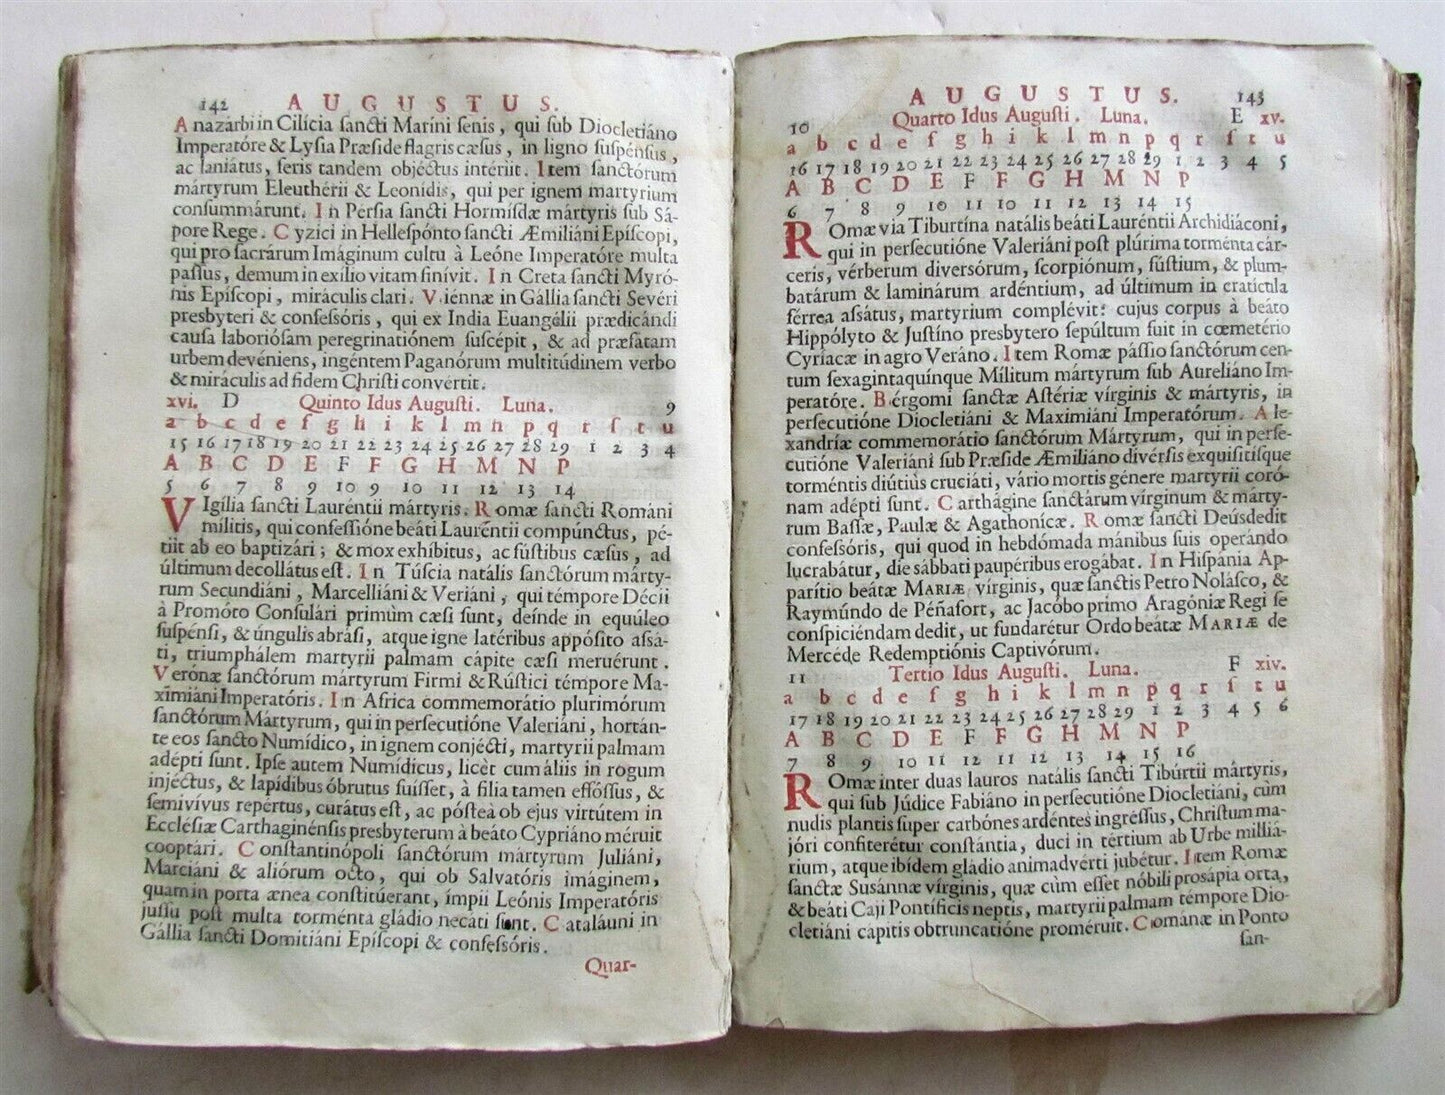 142 AUGUSTUS.
Anazárbi in Cilícia ſancti Marini ſenis, qui ſub Diocletiáno
Imperatóre & Lyſia Præſide flagris cæſus, in ligno ſuſpénſus,
ac laniátus, feris tandem objéctus intériit. Item ſanctórum
mártyrum Eleuthérii & Leonídis, qui per ignem martyrium
conſummárunt. In Perſia ſancti Hormíſdæ mártyris ſub Sá-
pore Rege. Cyzici in Helleſpónto ſancti Æmiliáni Epíſcopi,
qui pro ſacrárum Imáginum cultu à Leóne Imperatóre multa
paſſus, demum in exílio vitam finívit. In Creta ſancti Myró-
nis Epíſcopi, miráculis clari. Viennæ in Gállia ſancti Sevéri
presbyteri & confeſsóris, qui ex India Euangélii prædicándi
cauſa laborióſam peregrinatiónem ſuſcépit, & ad præfatam
urbem devéniens, ingéntem Paganórum multitúdinem verbo
& miráculis ad fidem Chriſti convértit.
xvi. D Quinto Idus Auguſti. Luna. 9
a b c d e f g h i k l m n p q r ſ t u
15 16 17 18 19 20 21 22 23 24 25 26 27 28 29 1 2 3 4
A B C D E F F G H M N P
5 6 7 8 9 10 9 10 11 12 13 14
VIgília ſancti Lauréntii mártyris. Romæ ſancti Románi
mílitis, qui confeſſióne beáti Lauréntii compúnctus, pé-
tiit ab eo baptizári; & mox exhíbitus, ac fúſtibus cæſus, ad
últimum decollátus eſt. In Túſcia natális ſanctórum márty-
rum Secundiáni, Marcelliáni & Veriáni, qui témpore Décii
à Promóto Conſulári primùm cæſi ſunt, deínde in equúleo
ſuſpénſi, & úngulis abráſi, atque igne latéribus appóſito aſsá-
ti, triumphálem martyrii palmam cápite cæſi meruérunt.
Verónæ ſanctórum mártyrum Firmi & Rúſtici témpore Ma-
ximiáni Imperatóris. In Africa commemorátio plurimórum
ſanctórum Mártyrum, qui in perſecutióne Valeriáni, hortán-
te eos ſancto Numídico, in ignem conjécti, martyrii palmam
adépti ſunt. Ipſe autem Numídicus, licèt cum áliis in rogum
injéctus, & lapídibus óbrutus fuíſſet, à fília tamen effóſſus, &
ſemivívus repértus, curátus eſt, ac póſtea ob ejus virtútem in
Eccléſiæ Carthaginénſis presbyterum à beáto Cypriáno méruit
cooptári. Conſtantinópoli ſanctórum mártyrum Juliáni,
Marciáni & aliórum octo, qui ob Salvatóris imáginem,
quam in porta ænea conſtitúerant, ímpii Leónis Imperatóris
juſſu poſt multa torménta gládio necáti ſunt. Cataláuni in
Gállia ſancti Domitiáni Epíſcopi & confeſsóris.
Quar-
AUGUSTUS. 143
10 Quarto Idus Auguſti. Luna. E xv.
a b c d e f g h i k l m n p q r ſ t u
16 17 18 19 20 21 22 23 24 25 26 27 28 29 1 2 3 4 5
A B C D E F F G H M N P
6 7 8 9 10 11 10 11 12 13 14 15
ROmæ via Tiburtína natális beáti Lauréntii Archidiáconi,
qui in perſecutióne Valeriáni poſt plúrima torménta cár-
ceris, vérberum diverſórum, ſcorpiónum, fúſtium, & plum-
batárum & laminárum ardéntium, ad últimum in cratícula
férrea aſsátus, martyrium complévit: cujus corpus à beáto
Hippólyto & Juſtíno presbytero ſepúltum fuit in cœmetério
Cyríacæ in agro Veráno. Item Romæ páſſio ſanctórum cen-
tum ſexagintaquínque Mílitum mártyrum ſub Aureliáno Im-
peratóre. Bérgomi ſanctæ Aſtériæ vírginis & mártyris, in
perſecutióne Diocletiáni & Maximiáni Imperatórum. Ale-
xandríæ commemorátio ſanctórum Mártyrum, qui in perſe-
cutióne Valeriáni ſub Præſide Æmiliáno divérſis exquiſitíſque
torméntis diútiùs cruciáti, vário mortis génere martyrii coró-
nam adépti ſunt. Carthágine ſanctárum vírginum & márty-
rum Baſſæ, Paulæ & Agathonícæ. Romæ ſancti Deúsdedit
confeſsóris, qui quod in hebdómada mánibus ſuis operándo
lucrabátur, die ſábbati paupéribus erogábat. In Hiſpánia Ap-
parítio beátæ MARIÆ vírginis, quæ ſanctis Petro Nolásco, &
Raymúndo de Péñafort, ac Jacóbo primo Aragóniæ Regi ſe
conſpiciéndam dedit, ut fundarétur Ordo beátæ MARIÆ de
Mercéde Redemptiónis Captivórum.
11 Tertio Idus Auguſti. Luna. F xiv.
a b c d e f g h i k l m n p q r ſ t u
17 18 19 20 21 22 23 24 25 26 27 28 29 1 2 3 4 5 6
A B C D E F F G H M N P
7 8 9 10 11 12 11 12 13 14 15 16
ROmæ inter duas lauros natális ſancti Tibúrtii mártyris,
qui ſub Júdice Fabiáno in perſecutióne Diocletiáni, cùm
nudis plantis ſuper carbónes ardéntes ingréſſus, Chriſtum ma-
jóri confiterétur conſtántia, duci in tértium ab Urbe milliá-
rium, atque ibídem gládio animadvérti jubétur. Item Romæ
ſanctæ Susánnæ vírginis, quæ cùm eſſet nóbili prosápia orta,
& beáti Caji Pontíficis neptis, martyrii palmam témpore Dio-
cletiáni cápitis obtruncatióne proméruit. Cománæ in Ponto
ſan-